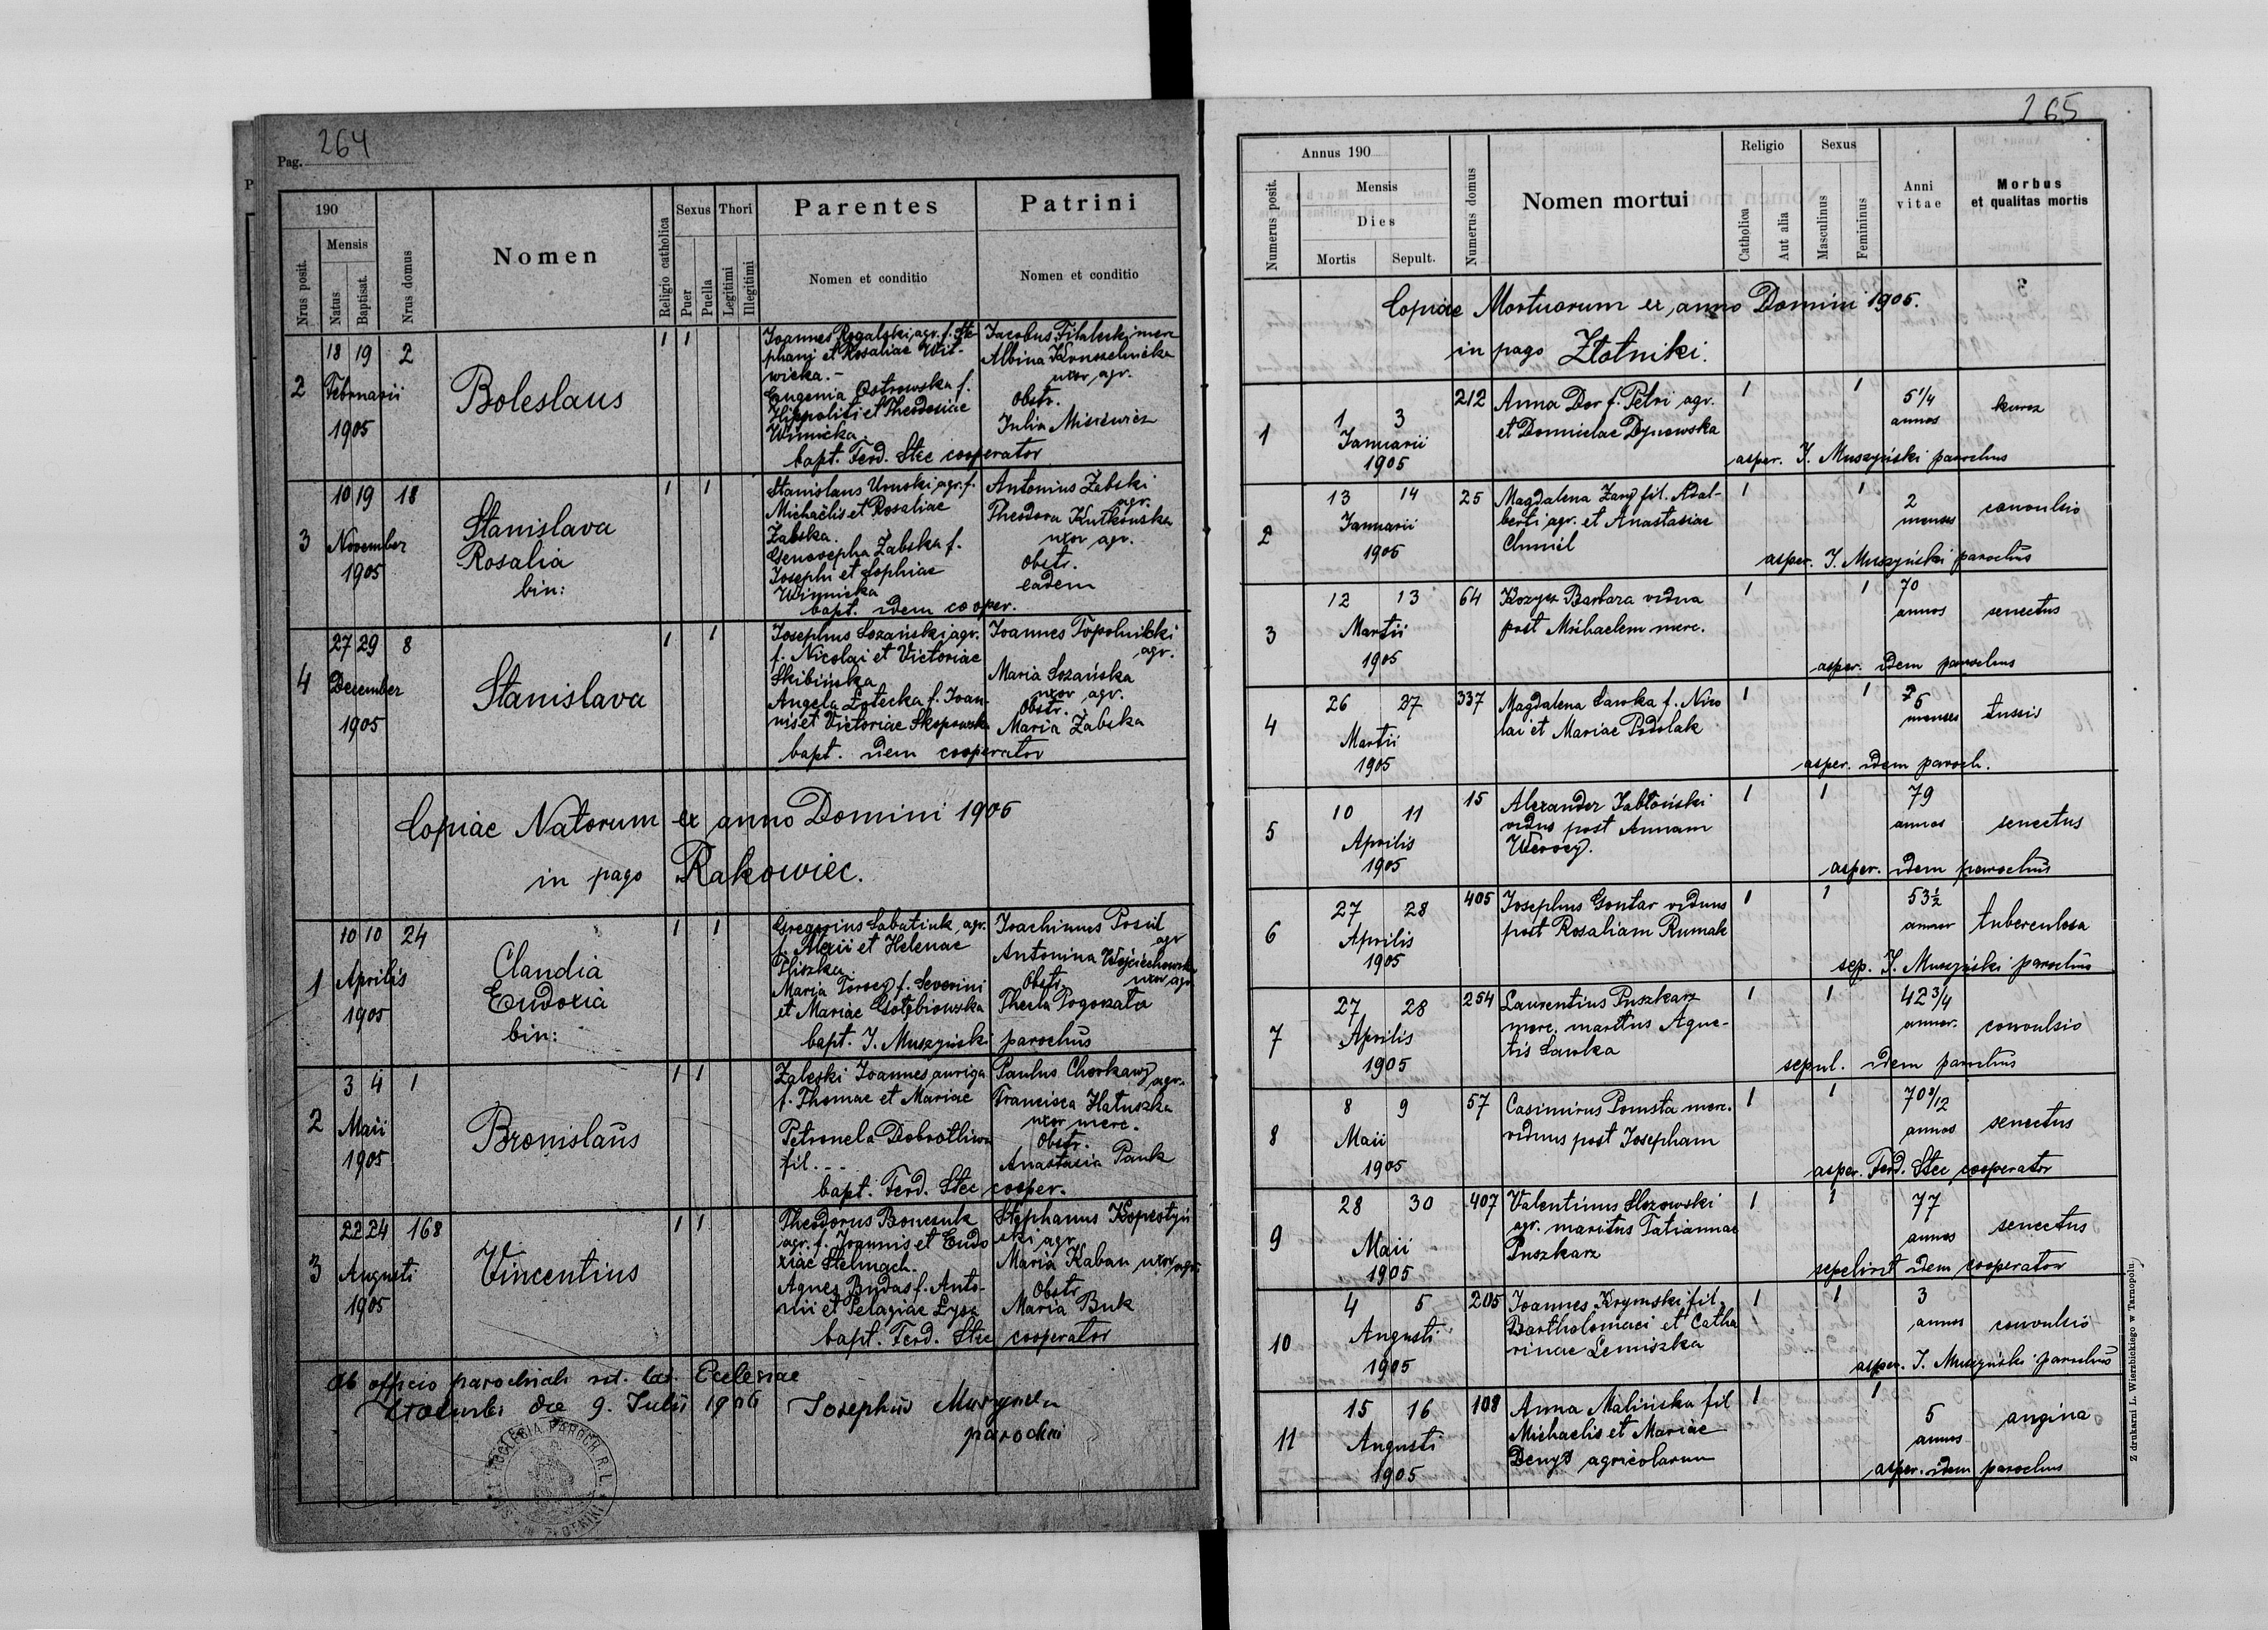 Pag. 264
190
Nrus posit.
Mensis
Natus
Baptisat.
Nrus domus
Nomen
Religio catholica
Sexus
Puer
Puella
Thori
Legitimi
Illegitimi
Parentes
Nomen et conditio
Patrini
Nomen et conditio
2
18 19 2
Februarii
1905
Boleslaus
1 1
Joannes Rogalski, agr. f. Ste-
phani et Rosaliae Wit-
wicka.-
Eugenia Ostrowska f.
Hippoliti et Theodosiae
Winnicka
Jacobus Filaleski merc
Albina
uxor agr.
Obstr.
Julia Misiewicz
bapt. Ferd. Stec cooperator
3
10 19 18
November
1905
Stanislava
Rosalia
bin:
1 1
Stanislaus Uruski agr. f.
Michaëlis et Rosaliae
Żabska.
Genovepha Żabska f.
Josephi et Sophiae
Winnicka
Antonius Żabski
agr.
Theodora Kutkowska
uxor agr.
Obstr.
eadem
bapt. idem cooper.
4
27 29 8
December
1905
Stanislava
1 1
Josephus Sozański agr.
f. Nicolai et Victoriae
Skibińska
Angela Złotecka f. Joan-
nis et Victoriae Skopowska
Joannes Topolnicki
agr.
Maria Sozańska
uxor agr.
Obstr.
Maria Żabska
bapt. idem cooperator
Copiae Natorum ex anno Domini 1905
in pago Rakowiec.
1
10 10 24
Aprilis
1905
Claudia
Eudoxia
bin:
1 1
Gregorius Sabatiuk, agr.
f. Alexii et Helenae
Hliszka
Maria Torocz f. Severini
et Mariae Gołębiowska
Joachimus Posul
agr
Antonina Wojciechowska
Obstr. uxor agr
Thecla Pogorzata
bapt. J. Muszyński parochus
2
3 4 1
Maii
1905
Bronislaus
1 1
Zaleski Joannes auriga
f. Thomae et Mariae
Petronela Dobrotliwa
fil. - -
Paulus Chorkawy agr.
Francisca Hatuszka
uxor merc.
Obstr.
Anastasia Pauk
bapt. Ferd. Stec cooper.
3
22 24 168
Augusti
1905
Vincentius
1 1
Theodorus Bonczuk
agr. f. Joannis et Eudo
xiae Stelmach.
Agnes Budas f. Anto-
nii et Pelagiae Łysa
Stephanus Kopestyń
ski agr.
Maria Kaban uxor agr.
Obstr
Maria Buk
bapt. Ferd. Stec cooperator
Ab officio parochiali rit. lat. Ecclesiae
die 9. Julii 1906
Josephus Muszyński
parochus
265
Annus 190
Numerus posit.
Mensis
Dies
Mortis
Sepult.
Numerus domus
Nomen mortui
Religio
Catholica
Aut alia
Sexus
Masculinus
Femininus
Anni
vitae
Morbus
et qualitas mortis
Copiae Mortuorum ex anno Domini 1905.
in pago Złotniki.
1
1 3
Januarii
1905
212 Anna Dor f. Petri agr.
et Domicelae Dynowska
1 1
5 1/4
annos
kurcz
asper. J. Muszyński parochus
2
13 14
Januarii
1905
25 Magdalena Zany fil. Adal-
berti agr. et Anastasiae
Chmiel
1 1
2
menses
convulsio
asper. J. Muszyński parochus
3
12 13
Martii
1905
64 Kozyra Barbara vidua
post Michaelem merc.
1 1
70
annos
senectus
asper. idem parochus
4
26 27
Martii
1905
337 Magdalena Sawka f. Nico
lai et Mariae Podolak
1 1
5
menses
tussis
asper. idem paroch.
5
10 11
Aprilis
1905
15 Alexander Jabłoński
vidus post Annam
1 1
79
annos
senectus
asper. idem parochus
6
27 28
Aprilis
1905
405 Josephus Gontar viduus
post Rosaliam Rumak
1 1
53 1/2
annor
tuberculosa
sep. J. Muszyński parochus
7
27 28
Aprilis
1905
254 Laurentius Puszkarz
merc. maritus Agne-
tis Sawka
1 1
42 3/4
annor.
convulsio
sepul. idem parochus
8
8 9
Maii
1905
57 Casimirus Pomsta merc.
viduus post Josepham
1 1
annos
senectus
asper. Ferd. Stec cooperator
9
28 30
Maii
1905
407 Valentinus Slozowski
agr. maritus Tatiannae
Puszkarz
1 1
77
annos
senectus
sepelivit idem cooperator
10
4 5
Augusti
1905
205 Joannes Krymski fil.
Bartholomaei et Catha
rinae Lemiszka
1 1
3
annos
convulsio
asper. J. Muszyński parochus
11
15 16
Augusti
1905
108 Anna Malińska fil
Michaelis et Mariae
Denys agricolarum
1 1
5
annos
angina
asper. idem parochus
Z drukarni L. Wierzbickiego w Tarnopolu.